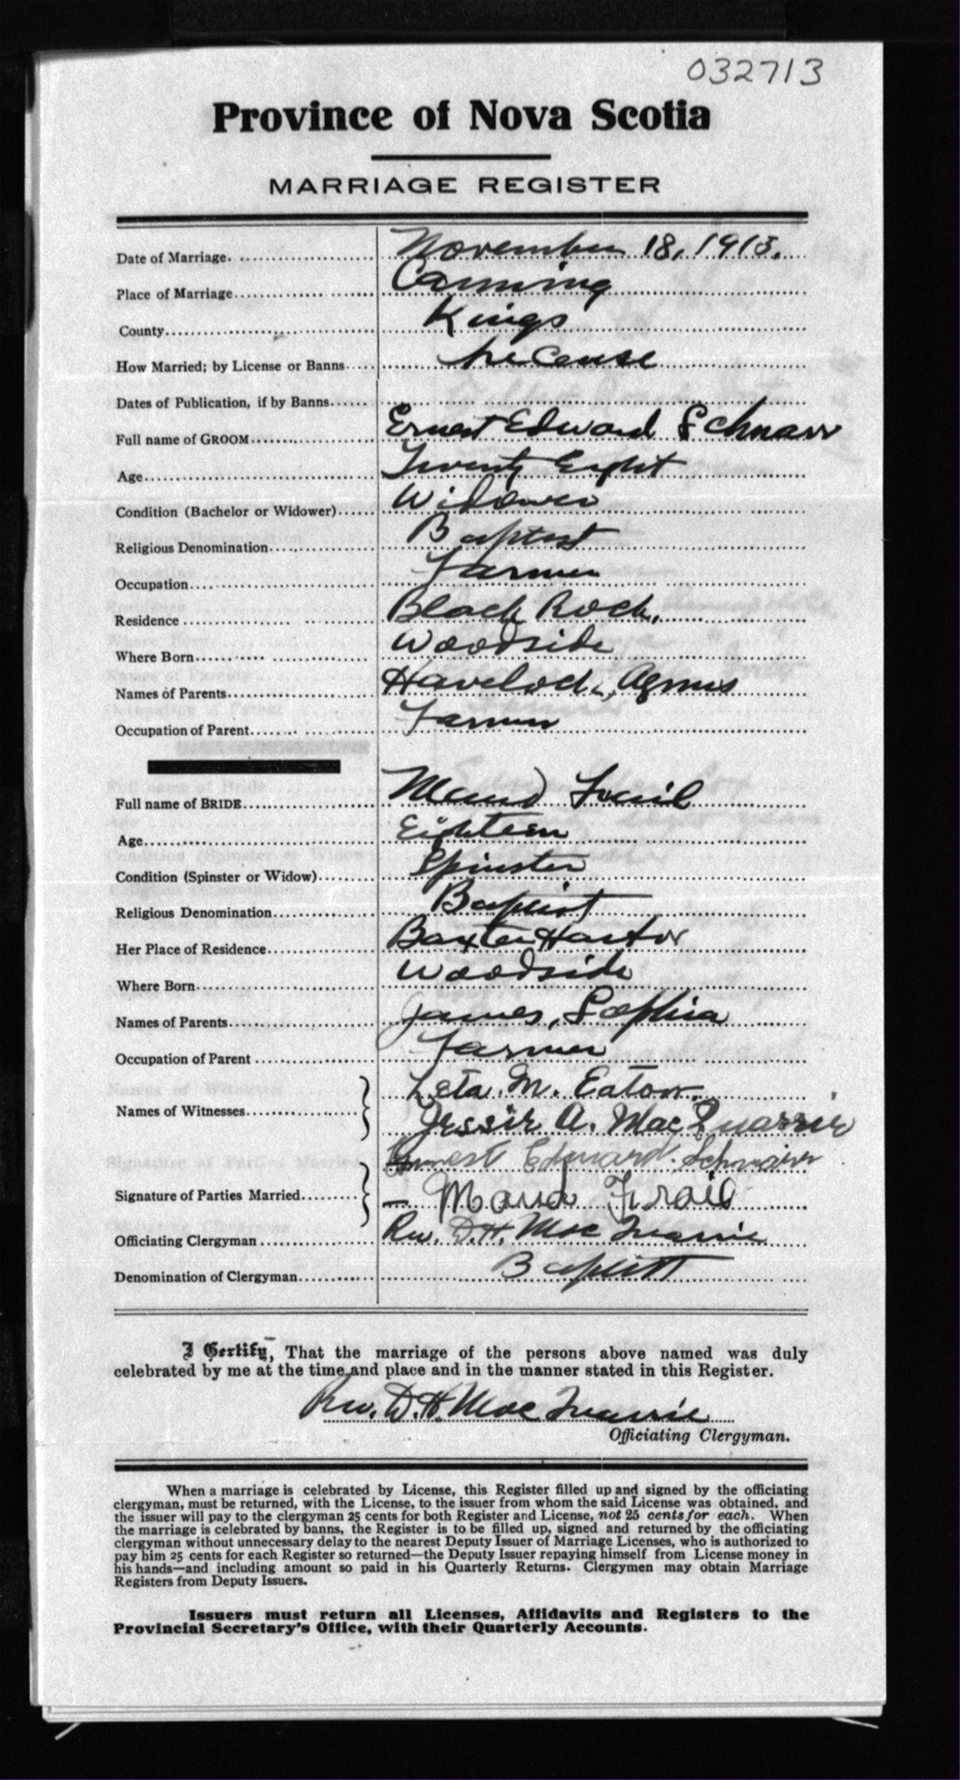 032713
Province of Nova Scotia
MARRIAGE REGISTER
Date of Marriage. November 18, 1913.
Place of Marriage Canning
County Kings
How Married; by License or Banns License
Dates of Publication, if by Banns
Full name of GROOM Ernest Edward Schnare
Age Twenty Eight
Condition (Bachelor or Widower) Widower
Religious Denomination Baptist
Occupation Farmer
Residence Black Rock.
Where Born Woodside
Names of Parents Havelock, Agnus
Occupation of Parent Farmer
Full name of BRIDE Maud
Age Eighteen
Condition (Spinster or Widow) Spinster
Religious Denomination Baptist
Her Place of Residence Baxter Harbor
Where Born Woodside
Names of Parents James, Sophia
Occupation of Parent Farmer
Names of Witnesses Leta M. Eaton.
Jessie A. MacQuarrie
Signature of Parties Married Ernest Edward Schnare
Maud
Officiating Clergyman Rev. D.H. MacQuarrie
Denomination of Clergyman Baptist
I Certify, That the marriage of the persons above named was duly
celebrated by me at the time and place and in the manner stated in this Register.
Rev. D.H. MacQuarrie
Officiating Clergyman.
When a marriage is celebrated by License, this Register filled up and signed by the officiating
clergyman, must be returned, with the License, to the issuer from whom the said License was obtained, and
the issuer will pay to the clergyman 25 cents for both Register and License, not 25 cents for each. When
the marriage is celebrated by banns, the Register is to be filled up, signed and returned by the officiating
clergyman without unnecessary delay to the nearest Deputy Issuer of Marriage Licenses, who is authorized to
pay him 25 cents for each Register so returned—the Deputy Issuer repaying himself from License money in
his hands—and including amount so paid in his Quarterly Returns. Clergymen may obtain Marriage
Registers from Deputy Issuers.
Issuers must return all Licenses, Affidavits and Registers to the
Provincial Secretary's Office, with their Quarterly Accounts.